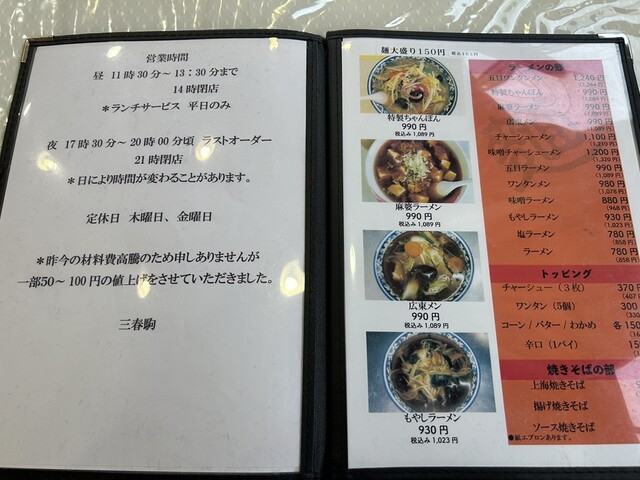 営業時間
昼 11時30分～13:30分まで
14時閉店
＊ランチサービス 平日のみ
夜 17時30分～20時00分頃 ラストオーダー
21時閉店
＊日により時間が変わることがあります。
定休日 木曜日、金曜日
＊昨今の材料費高騰のため申しありませんが
一部50～100円の値上げをさせていただきました。
三春駒
麺大盛り150円 税込165円
特製ちゃんぽん
990円
税込み1,089円
麻婆ラーメン
990円
税込み1,089円
広東メン
990円
税込み1,089円
もやしラーメン
930円
税込み1,023円
ラーメンの部
五目ワンタンメン 1,240円
特製ちゃんぽん 990円
(1,089円)
麻婆ラーメン 990円
(1,089円)
広東メン 990円
(1,089円)
チャーシューメン 1,100円
(1,210円)
味噌チャーシューメン 1,200円
(1,320円)
五目ラーメン 990円
(1,089円)
ワンタンメン 980円
(1,078円)
味噌ラーメン 880円
(968円)
もやしラーメン 930円
(1,023円)
塩ラーメン 780円
(858円)
ラーメン 780円
(858円)
トッピング
チャーシュー（3枚） 370円
(407
ワンタン（5個） 300
(330
コーン / バター / わかめ 各150
辛口（1パイ）
焼きそばの部
上海焼きそば
揚げ焼きそば
ソース焼きそば
●紙エプロンあります。